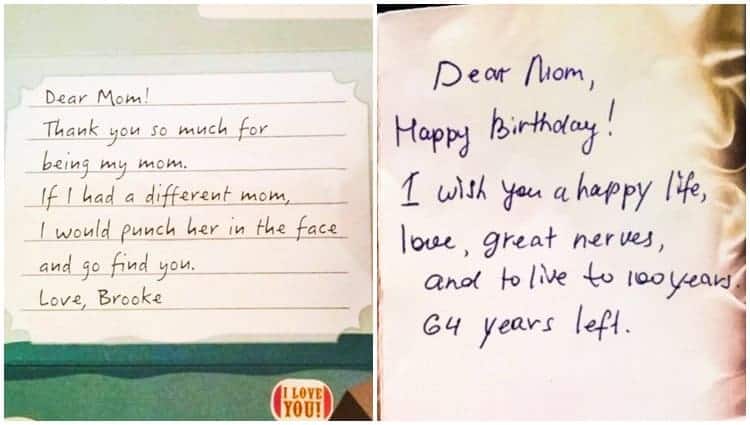 Dear Mom!
Thank you so much for
being my mom.
If I had a different mom,
I would punch her in the face
and go find you.
Love, Brooke
I LOVE
YOU!
Dear Mom,
Happy Birthday!
I wish you a happy life,
love, great nerves,
and to live to 100 years.
64 years left.